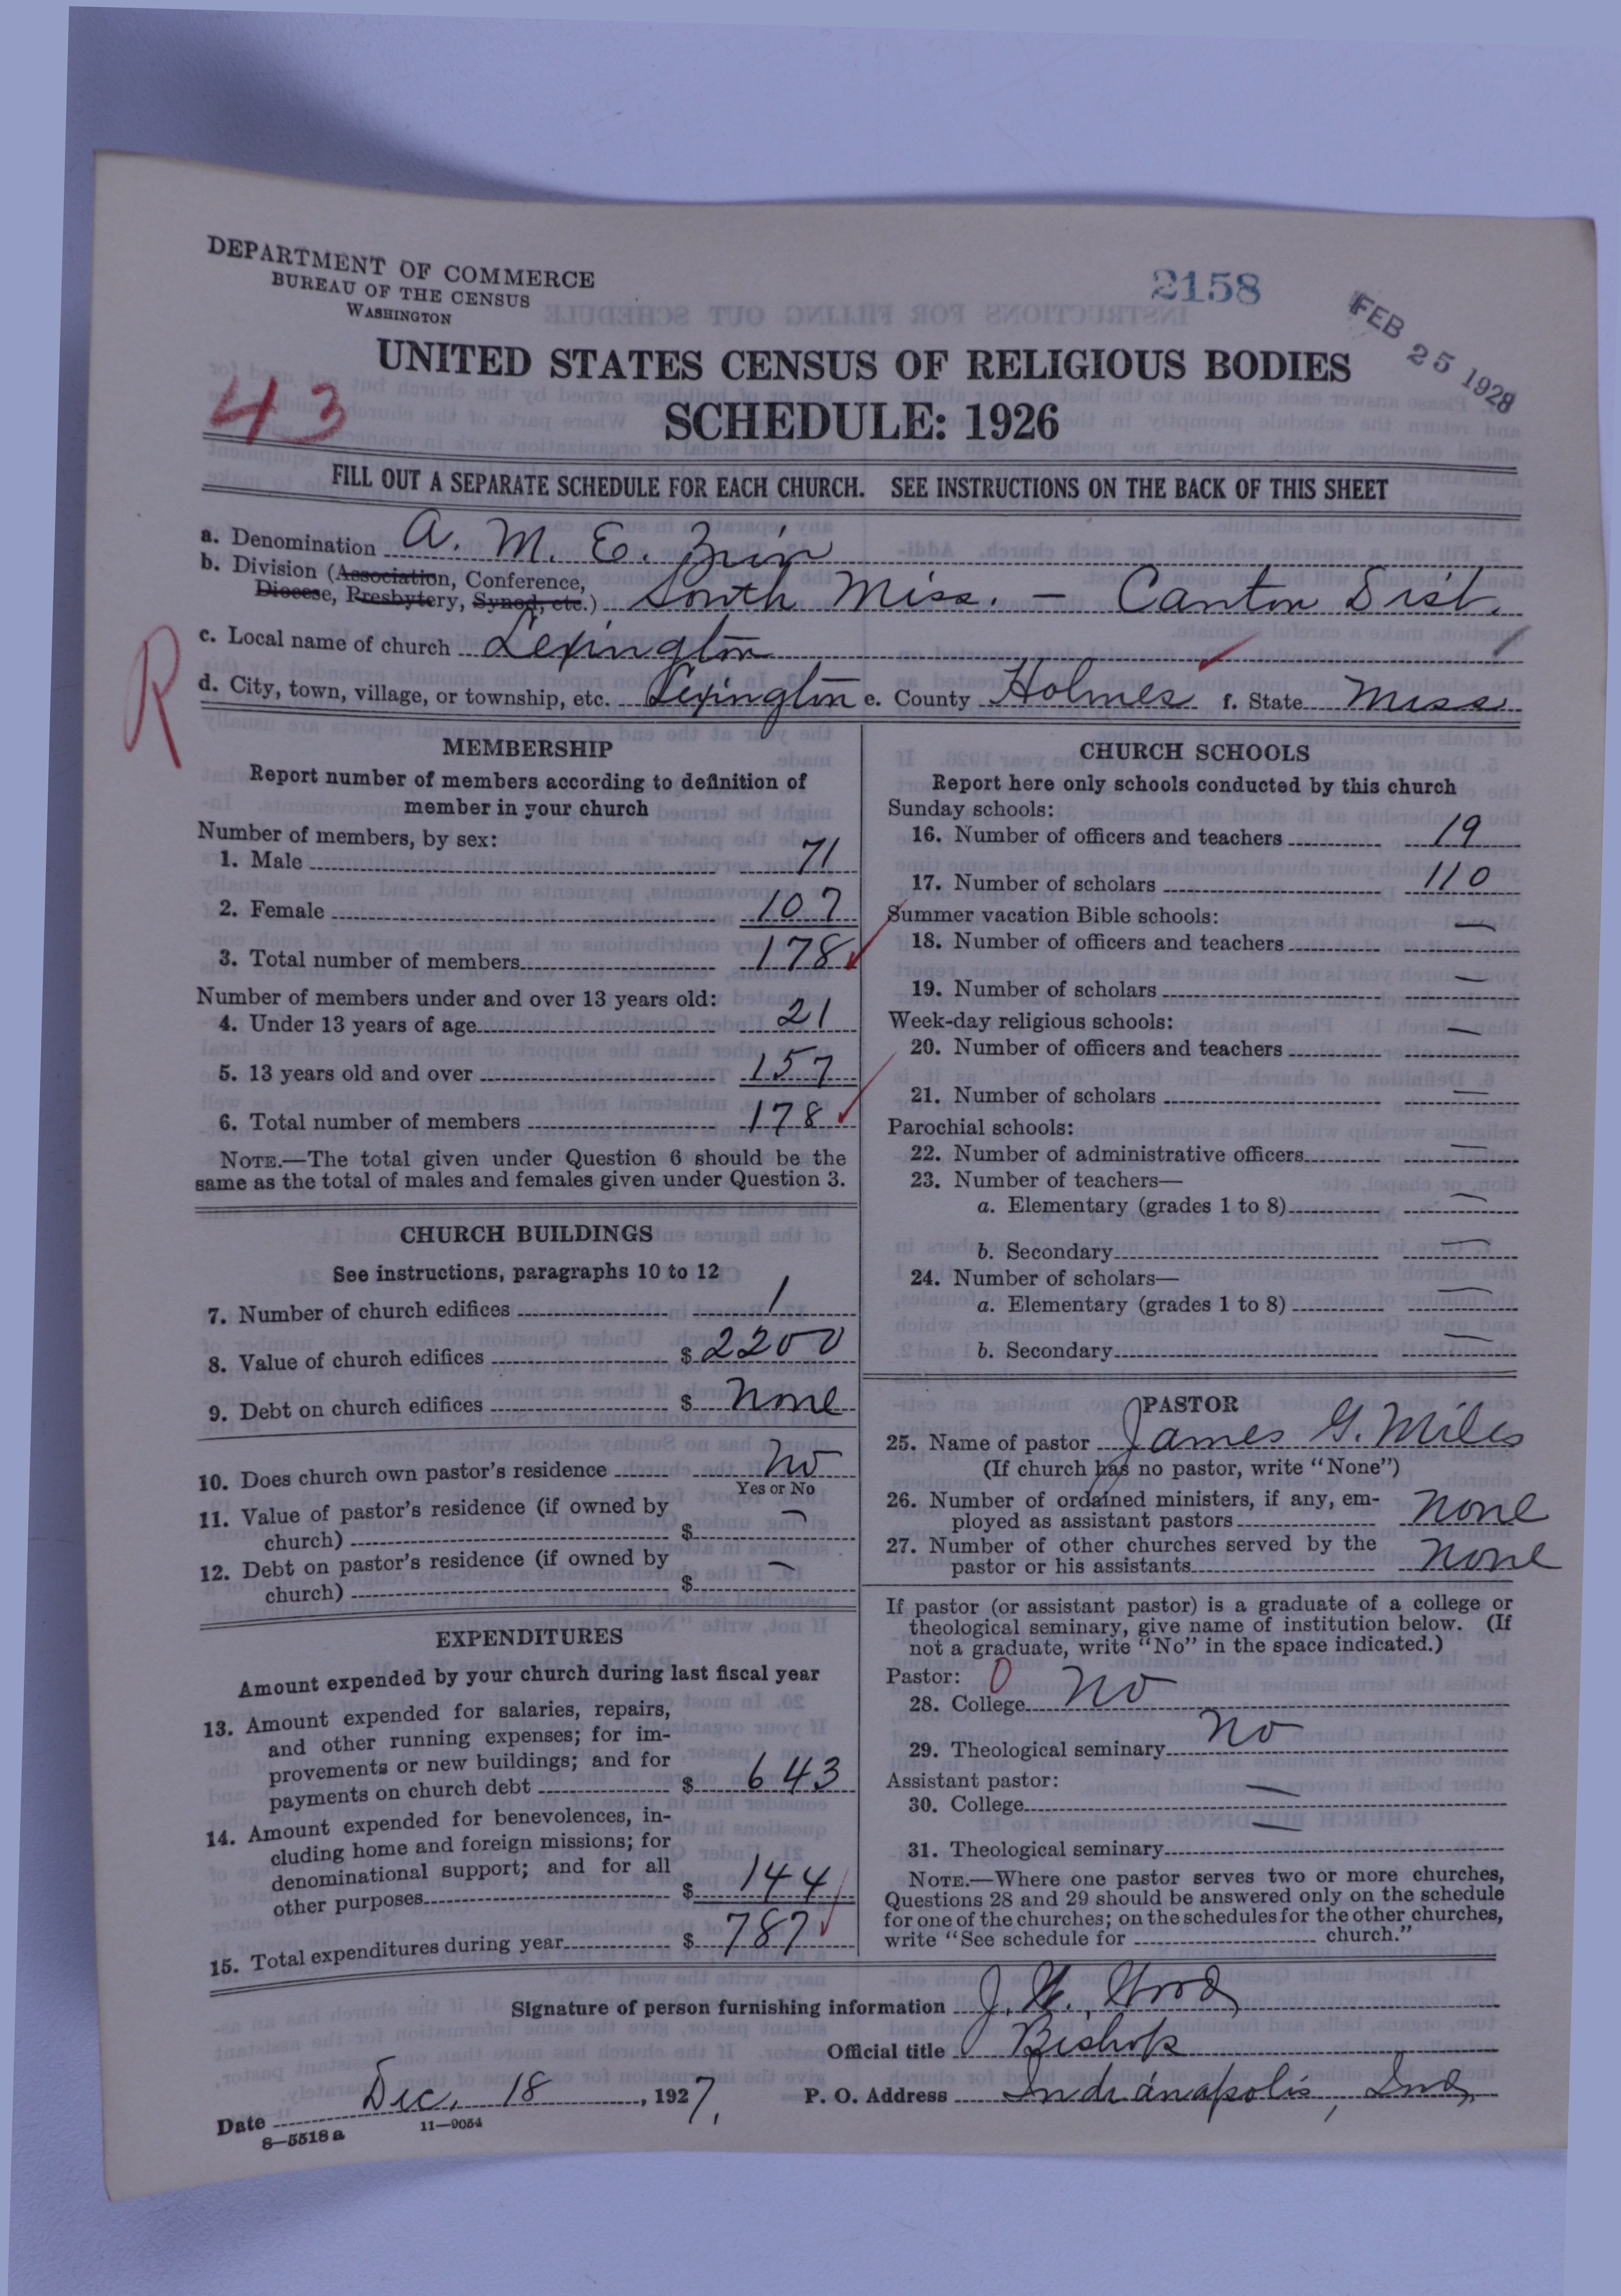 DEPARTMENT OF COMMERCE
BUREAU OF THE CENSUS
WASHINGTON
2158
FEB 25 1928
UNITED STATES CENSUS OF RELIGIOUS BODIES
SCHEDULE: 1926
43
FILL OUT A SEPARATE SCHEDULE FOR EACH CHURCH. SEE INSTRUCTIONS ON THE BACK OF THIS SHEET
a. Denomination A. M. E. Zion
b. Division (Association, Conference,
Diocese, Presbytery, Synod, etc.) South Miss. - Canton Dist.
c. Local name of church Lexington
R
d. City, town, village, or township, etc. Lexington e. County Holmes f. State Miss
MEMBERSHIP
Report number of members according to definition of
member in your church
Number of members, by sex:
1. Male 71
2. Female 107
3. Total number of members 178
Number of members under and over 13 years old:
4. Under 13 years of age 21
5. 13 years old and over 157
6. Total number of members 178
NOTE.—The total given under Question 6 should be the
same as the total of males and females given under Question 3.
CHURCH BUILDINGS
See instructions, paragraphs 10 to 12
7. Number of church edifices 1
8. Value of church edifices $ 2200
9. Debt on church edifices $ None
10. Does church own pastor's residence No
Yes or No
11. Value of pastor's residence (if owned by
church) $ —
12. Debt on pastor's residence (if owned by
church) $ —
EXPENDITURES
Amount expended by your church during last fiscal year
13. Amount expended for salaries, repairs,
and other running expenses; for im-
provements or new buildings; and for
payments on church debt $ 643
14. Amount expended for benevolences, in-
cluding home and foreign missions; for
denominational support; and for all
other purposes $ 144
15. Total expenditures during year $ 787
CHURCH SCHOOLS
Report here only schools conducted by this church
Sunday schools:
16. Number of officers and teachers 19
17. Number of scholars 110
Summer vacation Bible schools:
18. Number of officers and teachers —
19. Number of scholars —
Week-day religious schools:
20. Number of officers and teachers —
21. Number of scholars —
Parochial schools:
22. Number of administrative officers —
23. Number of teachers—
a. Elementary (grades 1 to 8) —
b. Secondary —
24. Number of scholars—
a. Elementary (grades 1 to 8) —
b. Secondary —
PASTOR
25. Name of pastor James G. Miles
(If church has no pastor, write "None")
26. Number of ordained ministers, if any, em-
ployed as assistant pastors None
27. Number of other churches served by the
pastor or his assistants None
If pastor (or assistant pastor) is a graduate of a college or
theological seminary, give name of institution below. (If
not a graduate, write "No" in the space indicated.)
Pastor: 0
28. College No
29. Theological seminary No
Assistant pastor:
30. College —
31. Theological seminary —
NOTE.—Where one pastor serves two or more churches,
Questions 28 and 29 should be answered only on the schedule
for one of the churches; on the schedules for the other churches,
write "See schedule for church."
Signature of person furnishing information J. W. Wood
Official title Bishop
Date Dec. 18, 1927. P. O. Address Indianapolis, Ind.
8—5518 a 11—9054